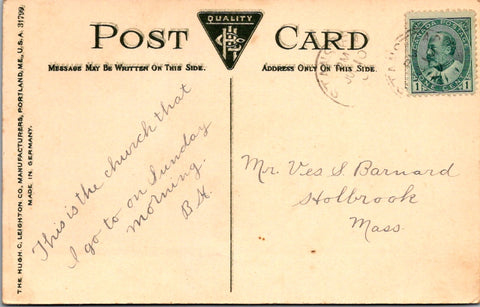 THE HUGH C. LEIGHTON CO., MANUFACTURERS, PORTLAND, ME., U.S.A. 31799.
MADE IN GERMANY.
POST CARD
QUALITY
MESSAGE MAY BE WRITTEN ON THIS SIDE.
ADDRESS ONLY ON THIS SIDE.
CANADA POSTAGE
1 1
This is the church that
I go to on Sunday
morning.
Mr. Ves S. Barnard
Holbrook
Mass.